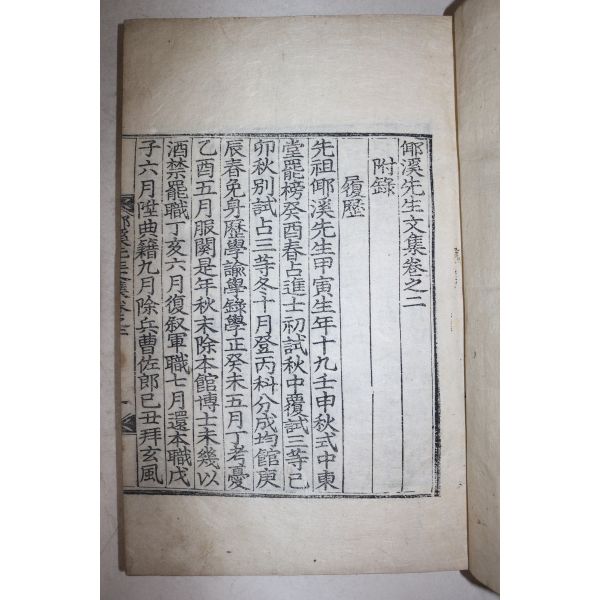 倻溪先生文集卷之二
附錄
履歷
先祖倻溪先生甲寅生年十九壬申秋式中東
堂罷榜癸酉春占進士初試秋中覆試三等己
卯秋別試占三等冬十月登丙科分成均館庚
辰春免身歷學諭學錄學正癸未五月丁考憂
乙酉五月服闋是年秋末除本館博士未幾以
酒禁罷職丁亥六月復敘軍職七月還本職戊
子六月陞典籍九月除兵曹佐郎己丑拜玄風
倻溪先生文集卷之二